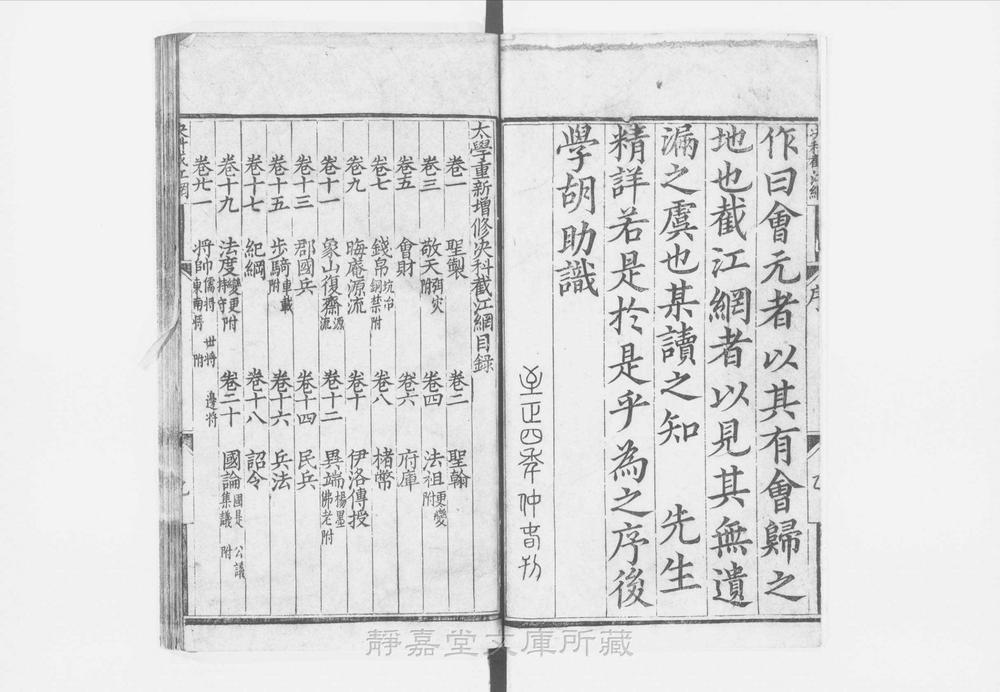 作曰會元者以其有會歸之
地也截江網者以見其無遺
漏之虞也某讀之知　先生
精詳若是於是乎為之序後
學胡助識
至正四年仲春刊
序
太學重新增修決科截江網目錄
卷一　聖製　卷二　聖翰
卷三　敬天 附消災　卷四　法祖 更變附
卷五　會財　卷六　府庫
卷七　錢帛 坑冶銅禁附　卷八　楮幣
卷九　晦庵源流　卷十　伊洛傳授
卷十一　象山復齋 源流　卷十二　異端 楊墨佛老附
卷十三　郡國兵　卷十四　民兵
卷十五　步騎 車載附　卷十六　兵法
卷十七　紀綱　卷十八　詔令
卷十九　法度 變更持守附　卷二十　國論 國是　公議　集議　附
卷廿一　將帥 儒將　世將　東南將　邊將　附
靜嘉堂文庫所藏